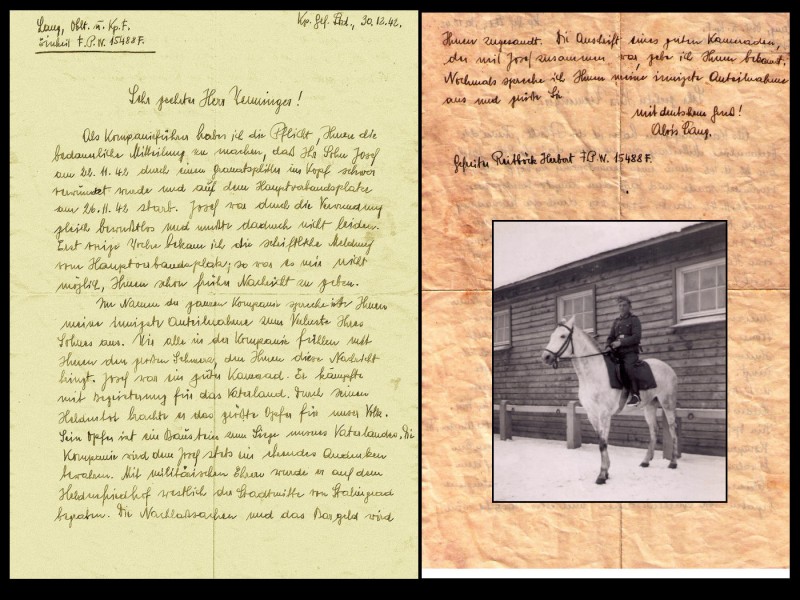 Lang, Oblt. u. Kp.F.
Einheit F.P.N. 15488 F.
Kp. Gef. Std., 30.12.42.
Sehr geehrter Herr
Als Kompanieführer habe ich die Pflicht, Ihnen die
bedauerliche Mitteilung zu machen, daß Ihr Sohn Josef
am 22.11.42 durch einen Granatsplitter im Kopf schwer
verwundet wurde und auf dem Hauptverbandsplatze
am 26.11.42 starb. Josef war durch die Verwundung
gleich bewußtlos und mußte dadurch nicht leiden.
Erst vorige Woche bekam ich die schriftliche Meldung
vom Hauptverbandsplatz, so war es mir nicht
möglich, Ihnen schon früher Nachricht zu geben.
Im Namen der ganzen Kompanie spreche ich Ihnen
meine innigste Anteilnahme zum Verluste Ihres
Sohnes aus. Wir alle in der Kompanie fühlen mit
Ihnen den großen Schmerz, den Ihnen diese Nachricht
bringt. Josef war ein guter Kamerad. Er kämpfte
mit Begeisterung für das Vaterland. Durch seinen
Heldentod brachte er das größte Opfer für unser Volk.
Sein Opfer ist ein Baustein zum Siege unseres Vaterlandes. Die
Kompanie wird dem Josef stets ein ehrendes Andenken
bewahren. Mit militärischen Ehren wurde er auf dem
Heldenfriedhof westlich der Stadtmitte von Stalingrad
begraben. Die Nachlaßsachen und das Bargeld wird
Ihnen zugesandt. Die Anschrift eines guten Kameraden,
der mit Josef zusammen war, gebe ich Ihnen bekannt.
Nochmals spreche ich Ihnen meine innigste Anteilnahme
aus und grüße Sie
mit deutschem Gruß!
Alois Lang.
Gefreiter Reitböck Herbert F.P.N. 15488 F.